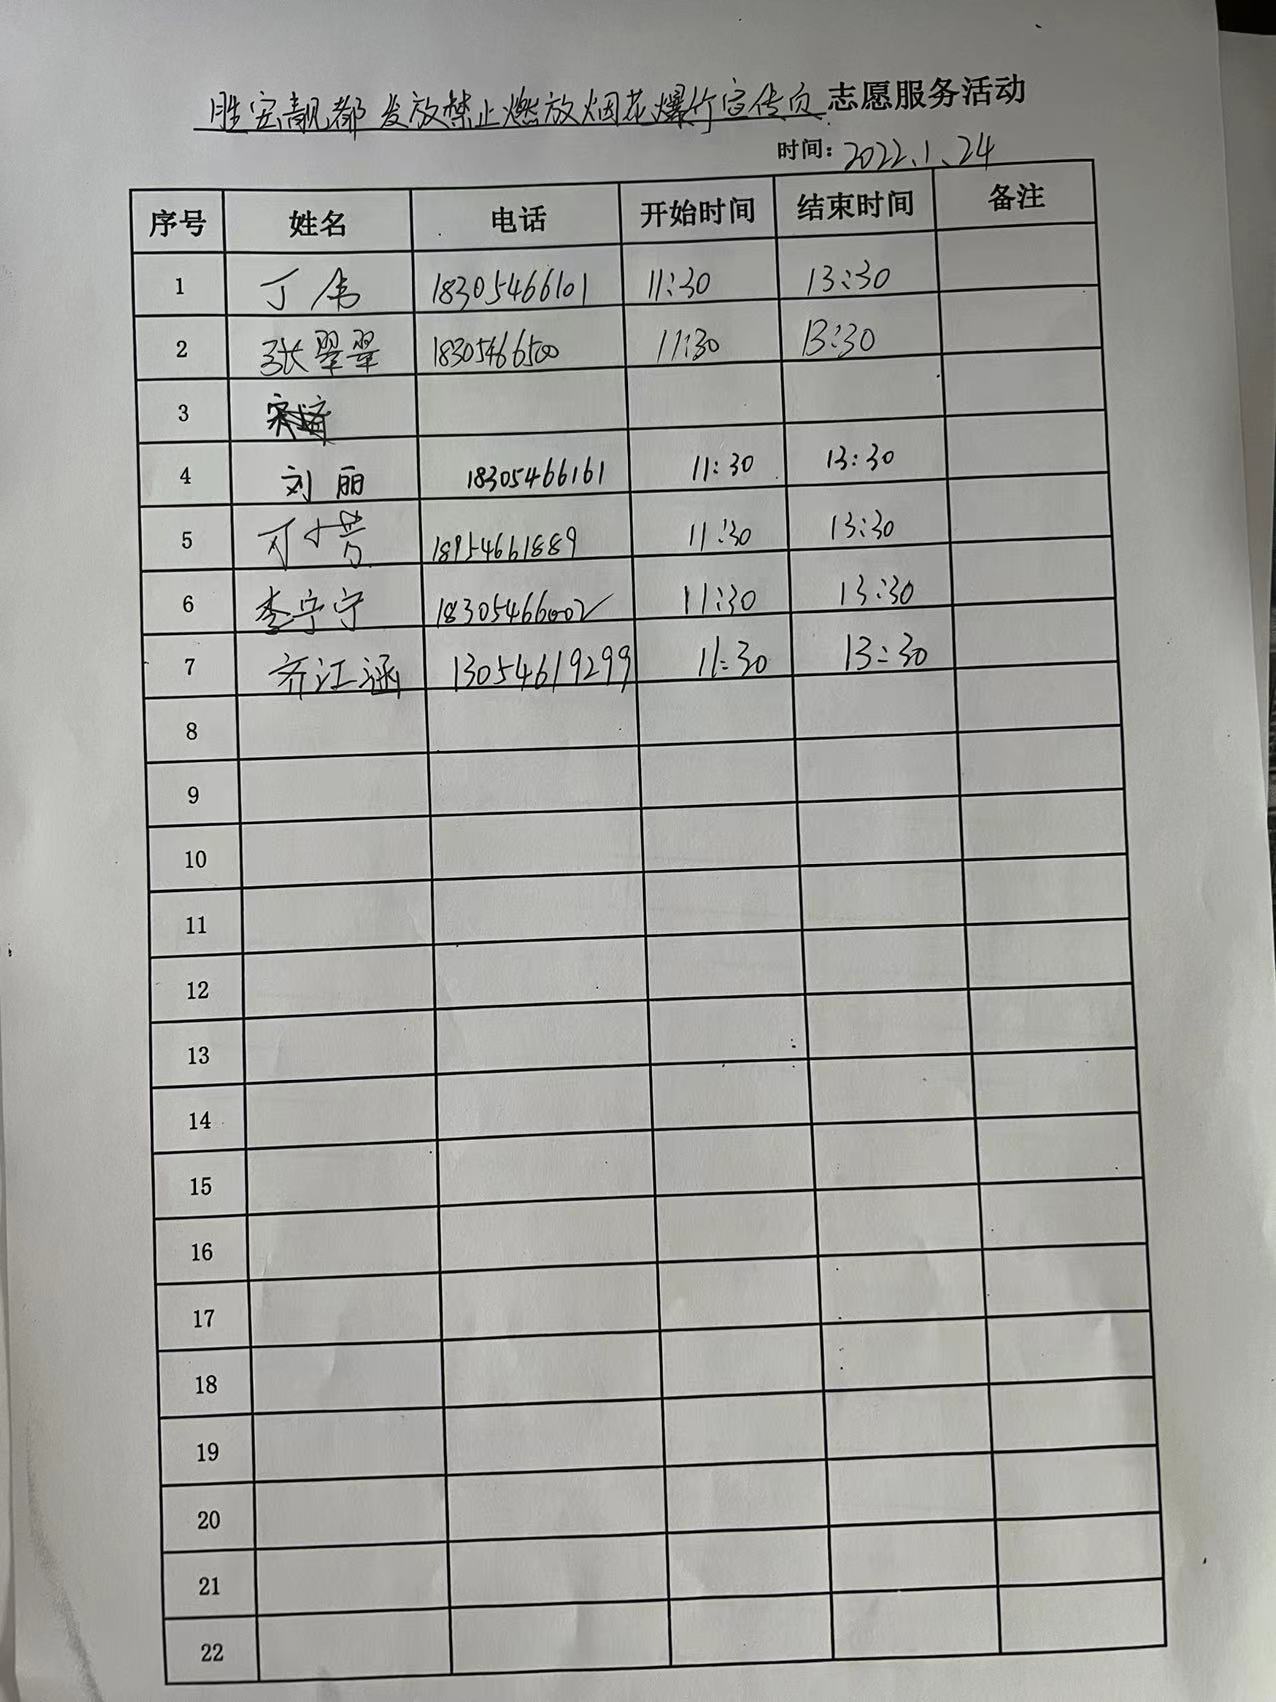 胜宏靓都发放禁止燃放烟花爆竹宣传页志愿服务活动
时间：2022.1.24
序号 姓名 电话 开始时间 结束时间 备注
1 丁伟 18305466101 11:30 13:30
2 张翠翠 18305466500 11:30 13:30
3
4 刘丽 18305466161 11:30 13:30
5 18954661889 11:30 13:30
6 李宁宁 18305466002 11:30 13:30
7 齐江涵 13054619299 11:30 13:30
8
9
10
11
12
13
14
15
16
17
18
19
20
21
22